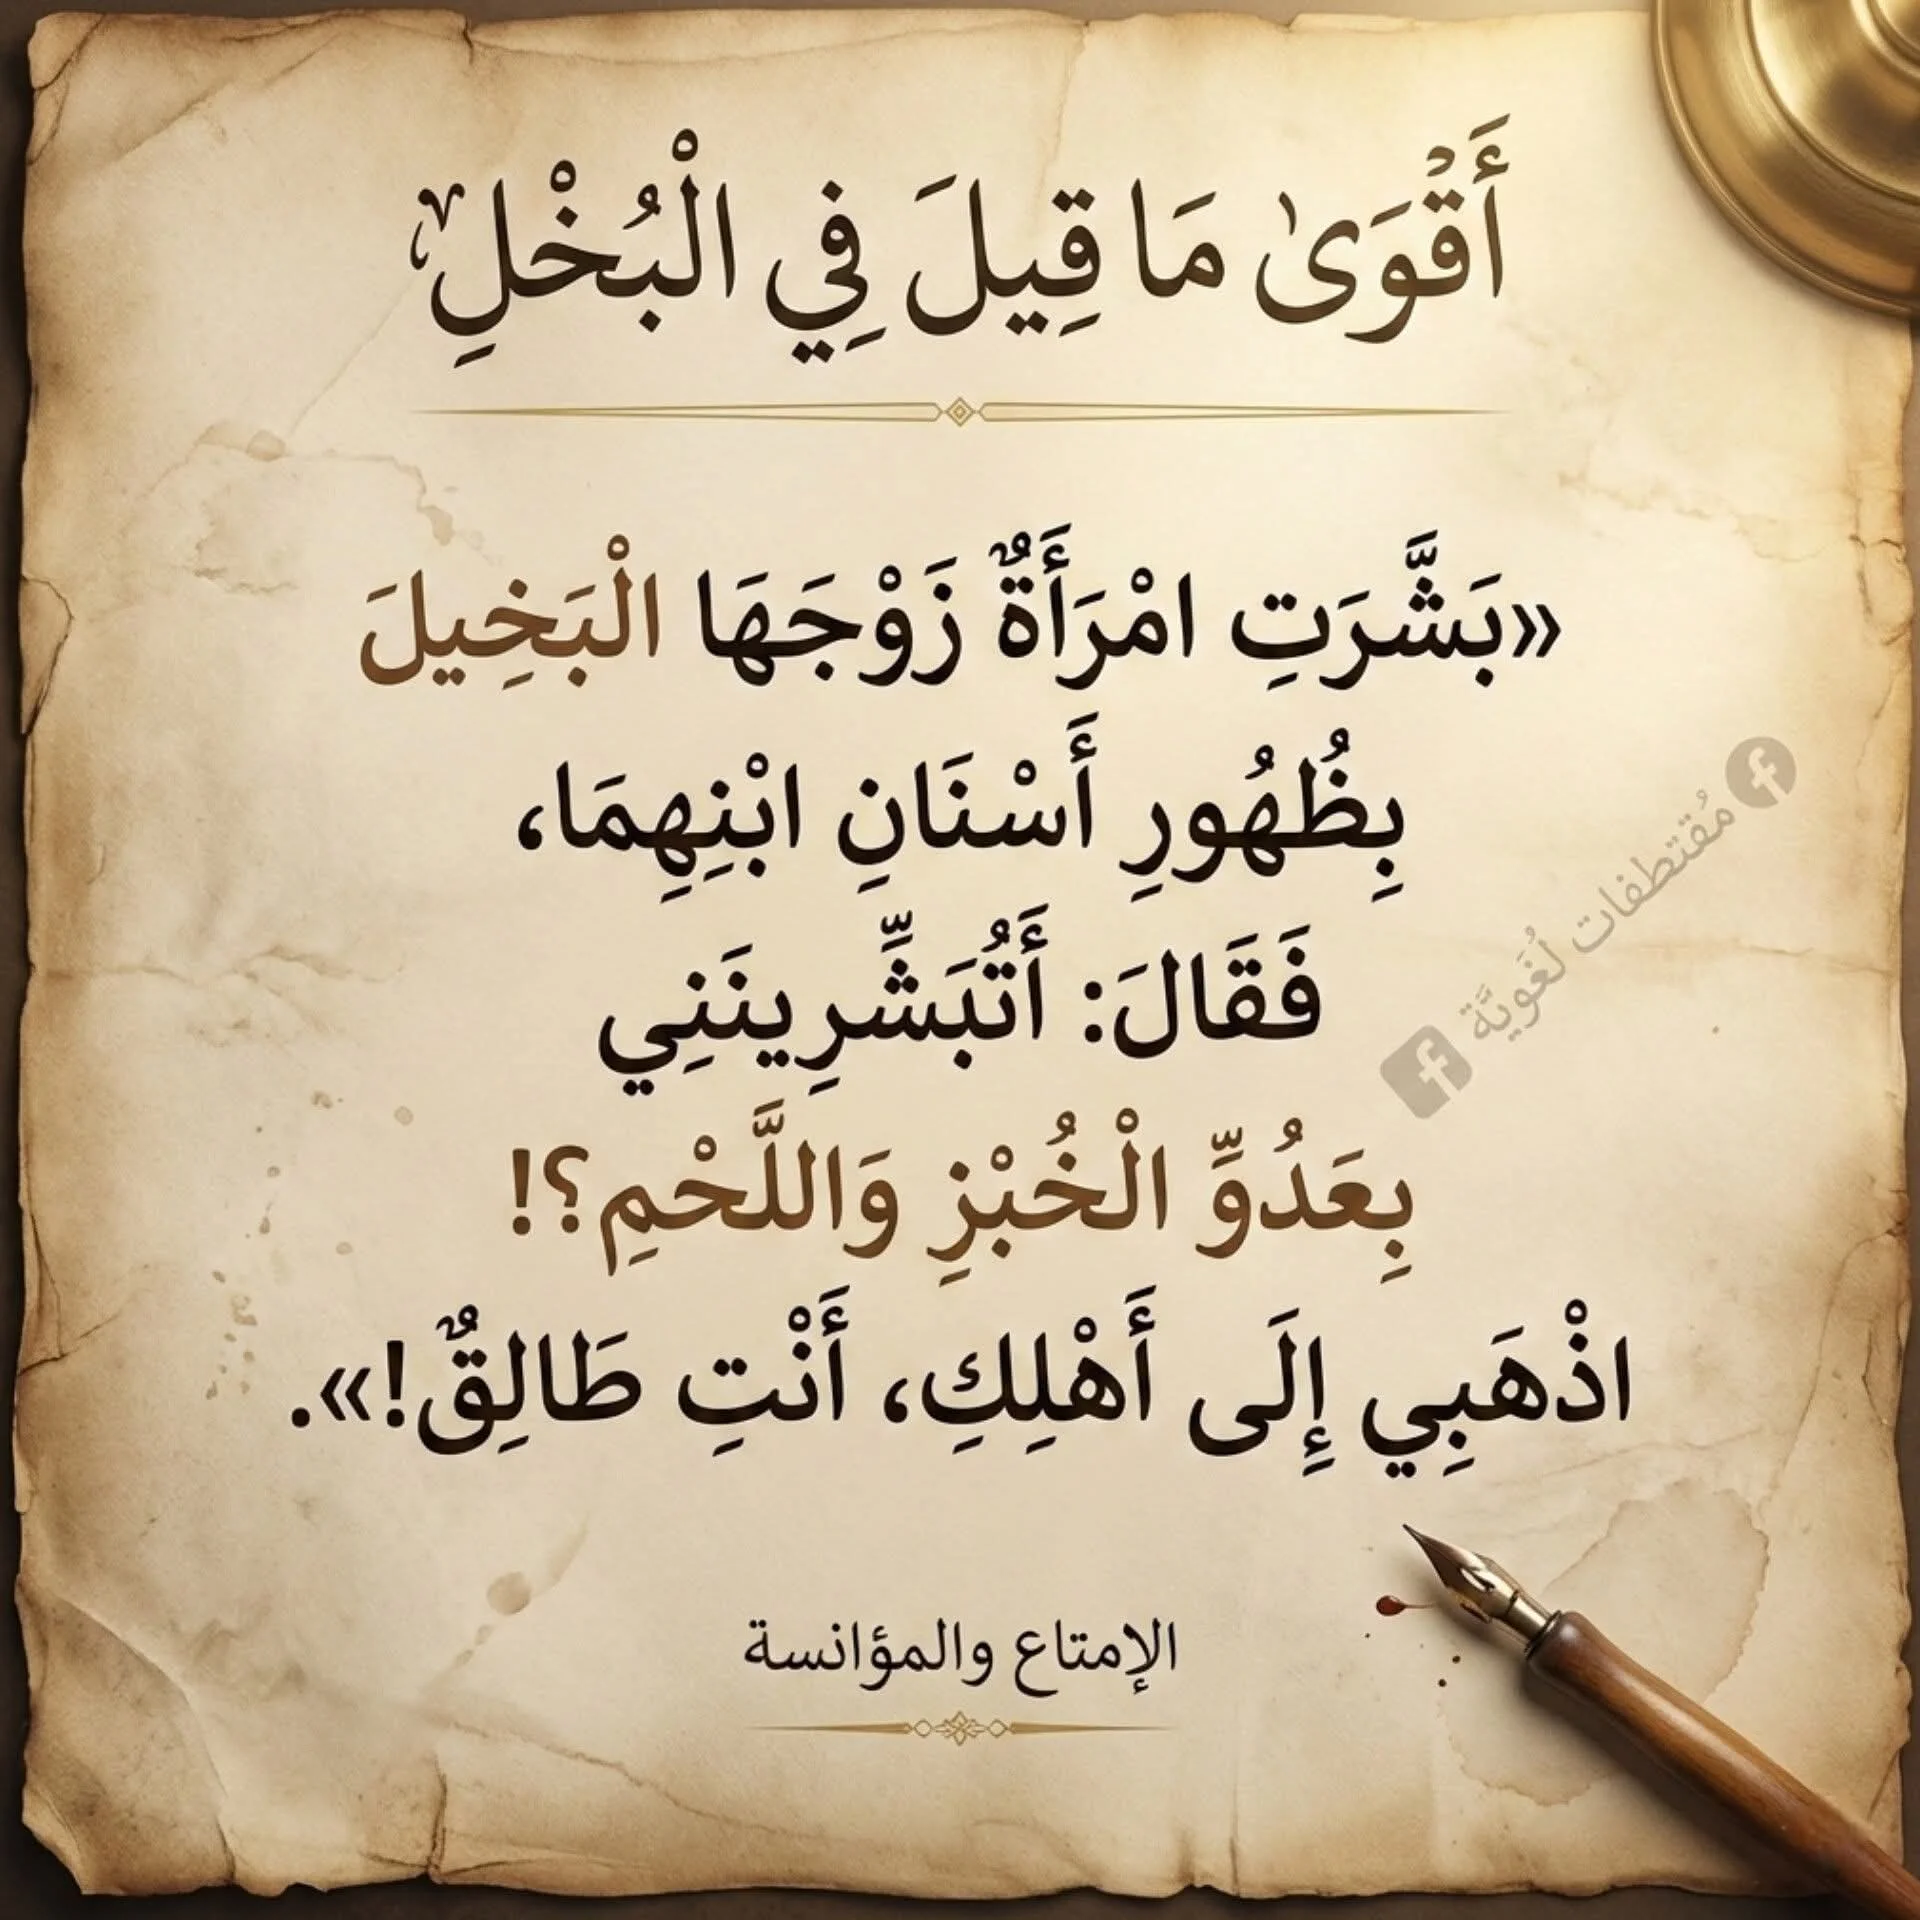 أَقْوَىٰ مَا قِيلَ فِي الْبُخْلِ
«بَشَّرَتِ امْرَأَةٌ زَوْجَهَا الْبَخِيلَ
بِظُهُورِ أَسْنَانِ ابْنِهِمَا،
فَقَالَ: أَتُبَشِّرِينَنِي
بِعَدُوِّ الْخُبْزِ وَاللَّحْمِ؟!
اذْهَبِي إِلَى أَهْلِكِ، أَنْتِ طَالِقٌ!».
مُقتطفات لُغَويَّة
الإمتاع والمؤانسة